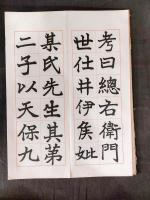 考曰總右衛門
世仕井伊侯妣
某氏先生其弟
二子以天保九